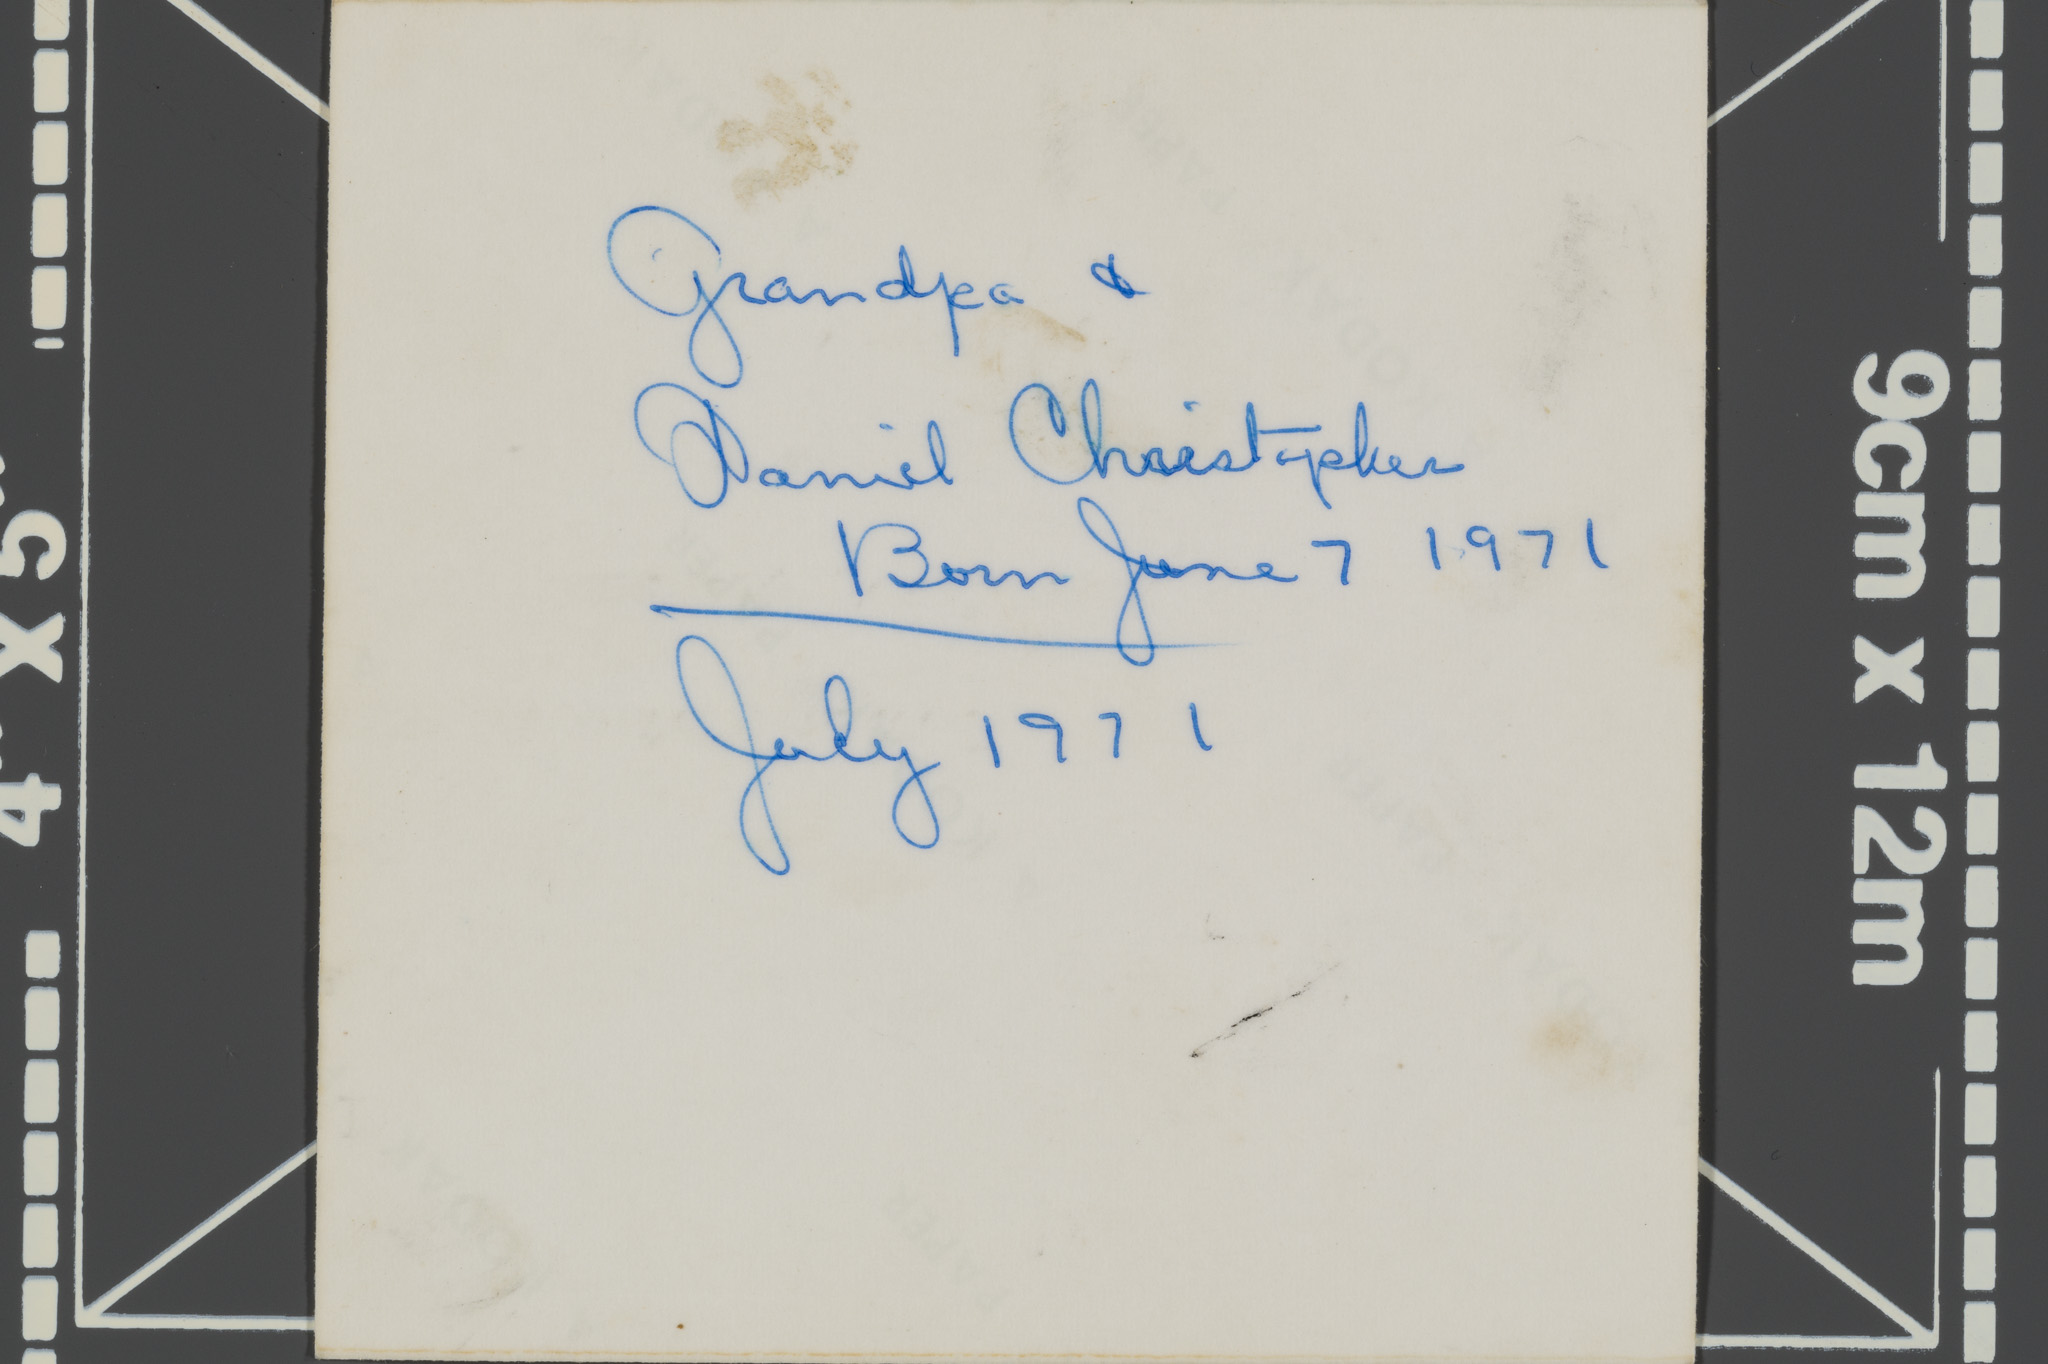 Grandpa &
Daniel Christopher
Born June 7 1971
July 1971
4" X 5"
9cm x 12m